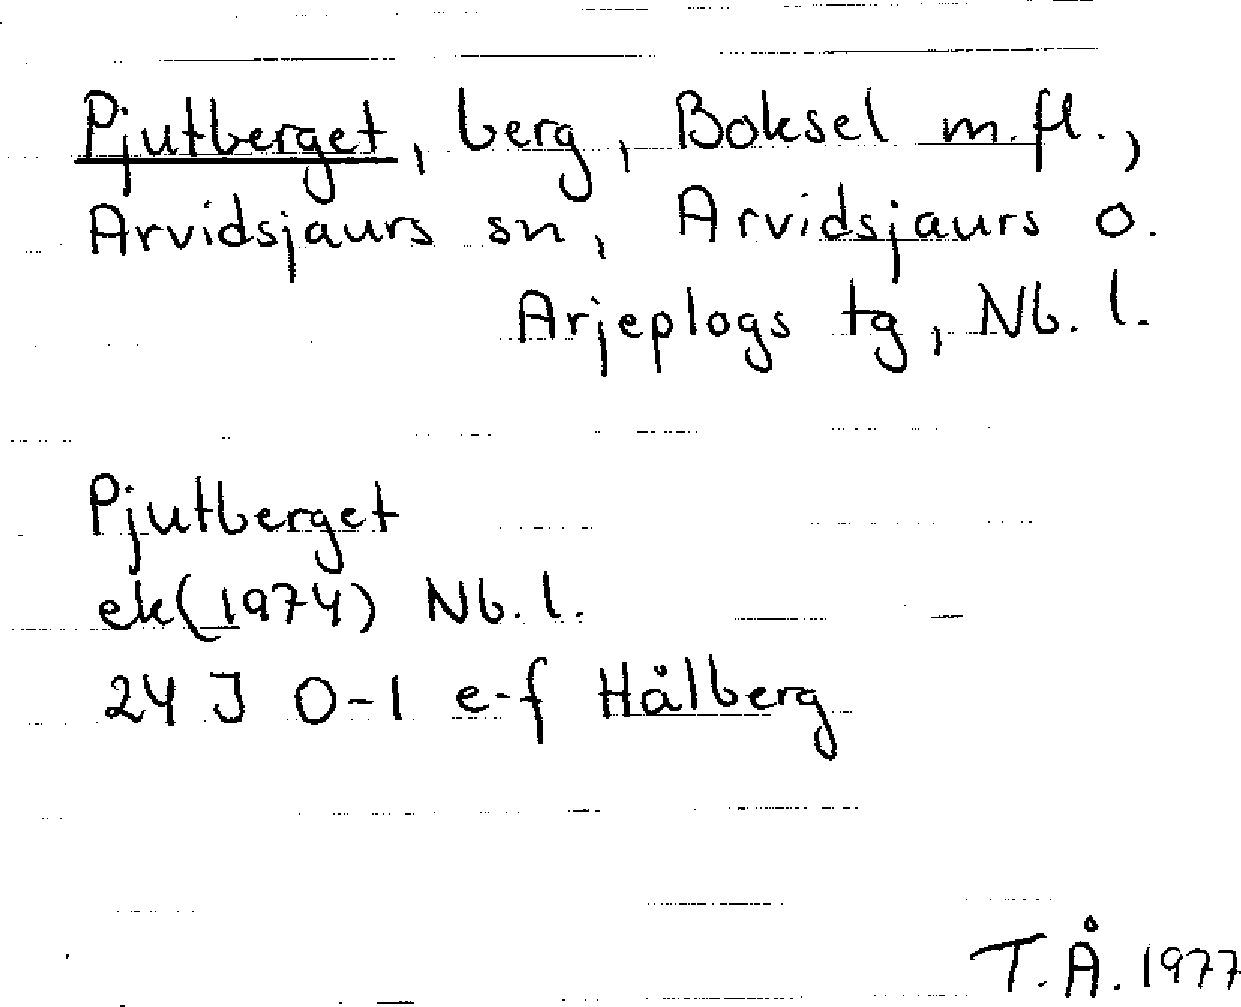 Pjutberget, berg, Boksel m.fl.,
Arvidsjaurs sn, Arvidsjaurs o.
Arjeplogs tg, Nb. l.
Pjutberget
ek(1974) Nb. l.
24 J 0-1 e-f Hålberg
T.Å. 1977